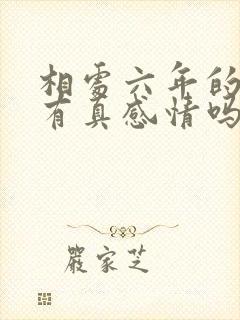 相處六年的
有真感情吗
嚴家芝